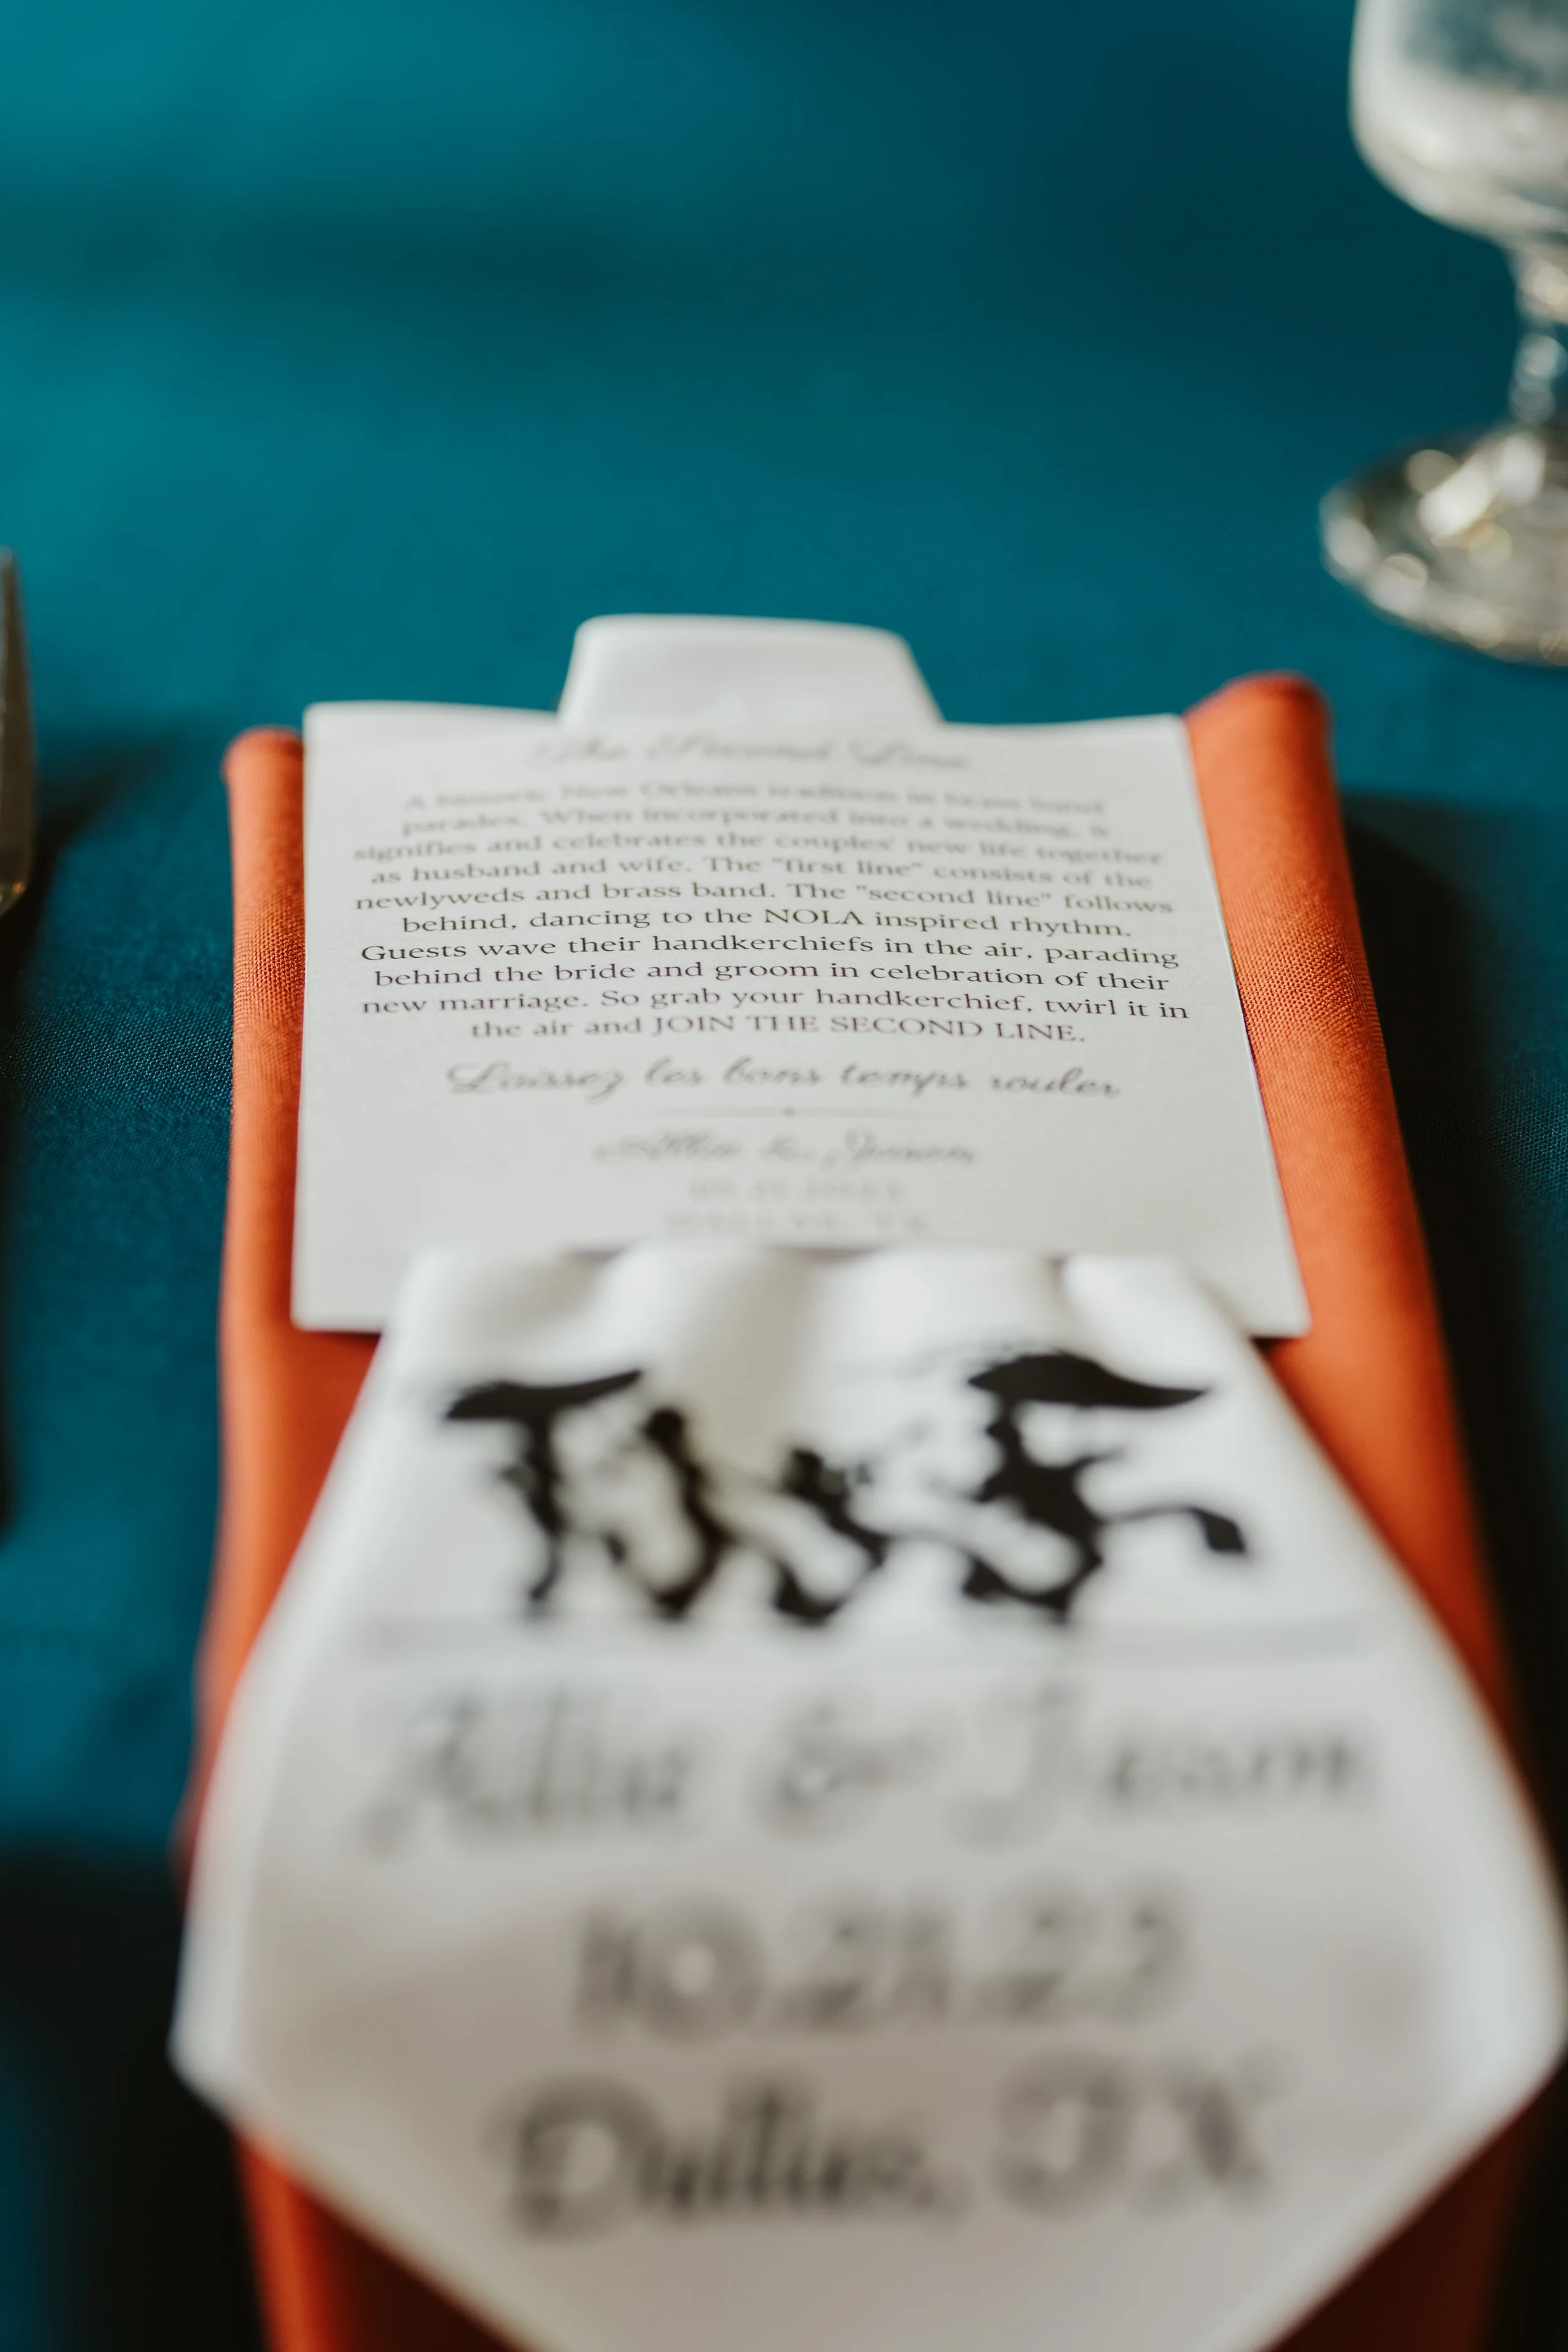 The Second Line
A historic New Orleans tradition in brass band
parades. When incorporated into a wedding, it
signifies and celebrates the couples' new life together
as husband and wife. The "first line" consists of the
newlyweds and brass band. The "second line" follows
behind, dancing to the NOLA inspired rhythm.
Guests wave their handkerchiefs in the air, parading
behind the bride and groom in celebration of their
new marriage. So grab your handkerchief, twirl it in
the air and JOIN THE SECOND LINE.
Laissez les bons temps rouler
Allie &
DALLAS, TX
Allie &
10.21.23
Dallas, TX